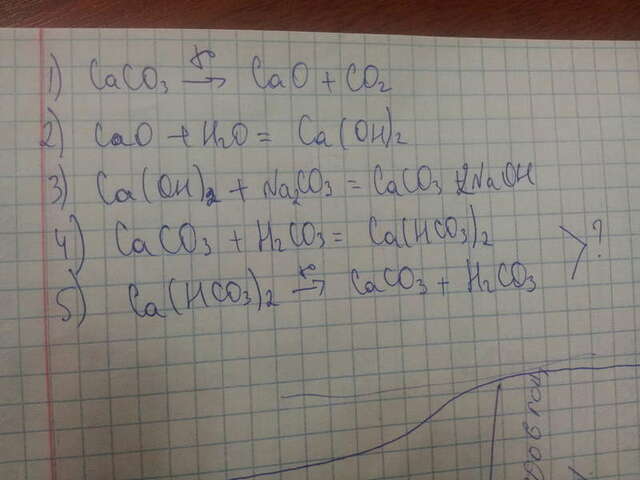 1) CaCO₃ →(t°) CaO + CO₂
2) CaO + H₂O = Ca(OH)₂
3) Ca(OH)₂ + Na₂CO₃ = CaCO₃ 2NaOH
4) CaCO₃ + H₂CO₃ = Ca(HCO₃)₂
5) Ca(HCO₃)₂ →(t°) CaCO₃ + H₂CO₃
?